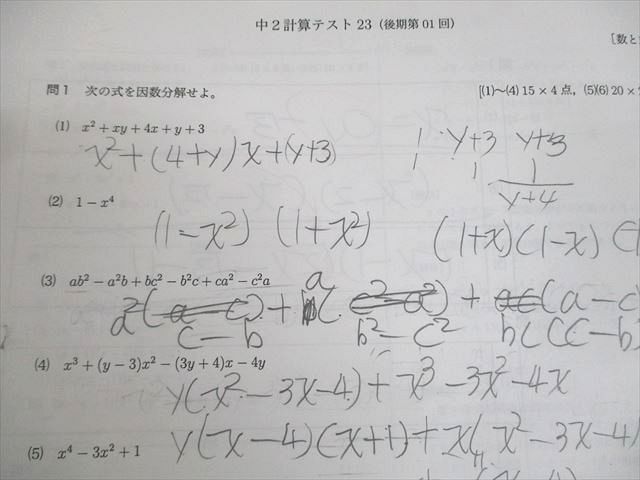 中2計算テスト23（後期第01回）
[数と
問1 次の式を因数分解せよ。
[(1)~(4) 15 × 4点, (5)(6) 20 ×
(1) x² + xy + 4x + y + 3
x² + (4+y)x + (y+3)
1 y+3 y+3
1 1
y+4
(2) 1 − x⁴
(1−x²) (1+x²) (1+x)(1−x)
(3) ab² − a²b + bc² − b²c + ca² − c²a
a²(c−b) + a(b²−c²) + bc(c−b
(4) x³ + (y − 3)x² − (3y + 4)x − 4y
y(x²−3x−4) + x³−3x²−4x
(5) x⁴ − 3x² + 1
y(x−4)(x+1) + x(x²−3x−4)